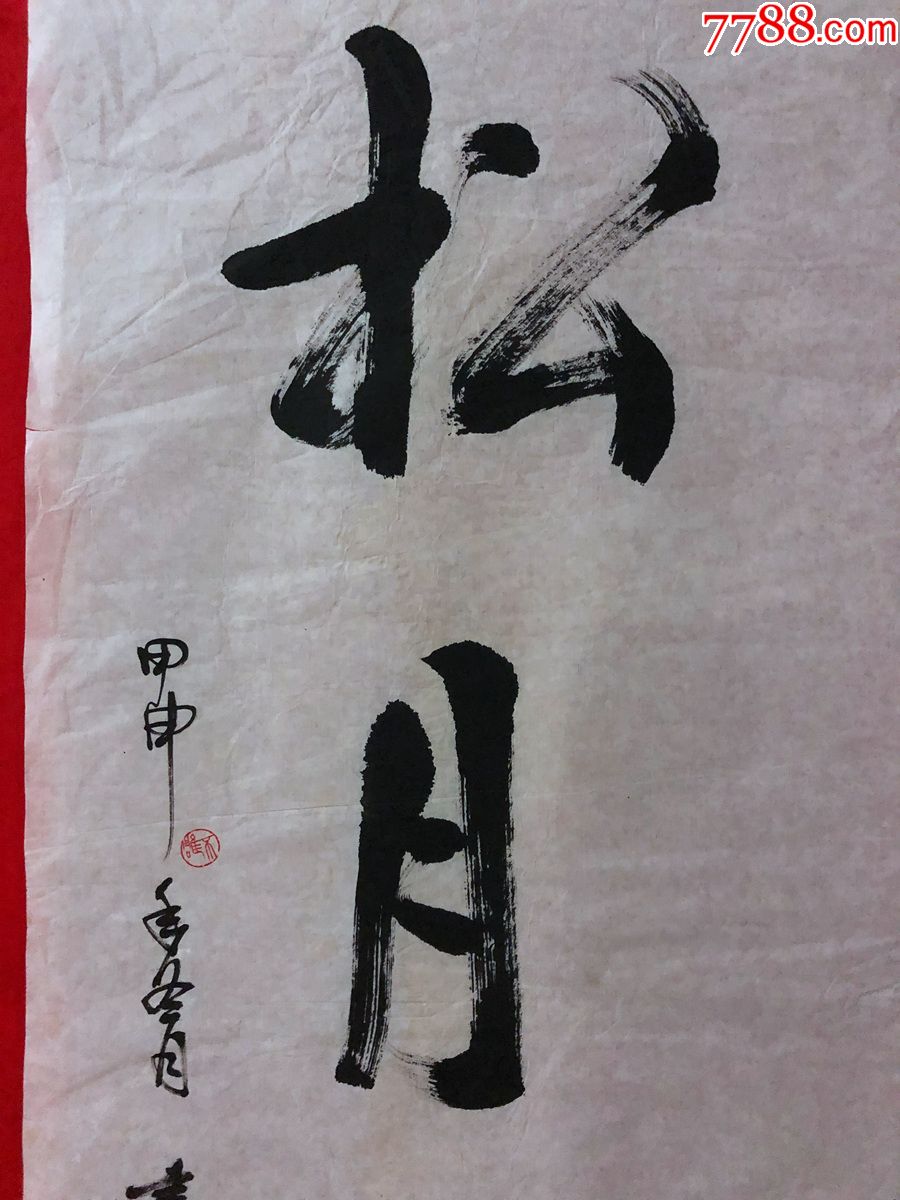 7788.com
松月
甲申年冬月书